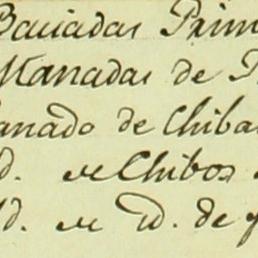 Baciadas Prim
Manadas de
anado de Chiba
d. de Chibos
d. de Yd. de y